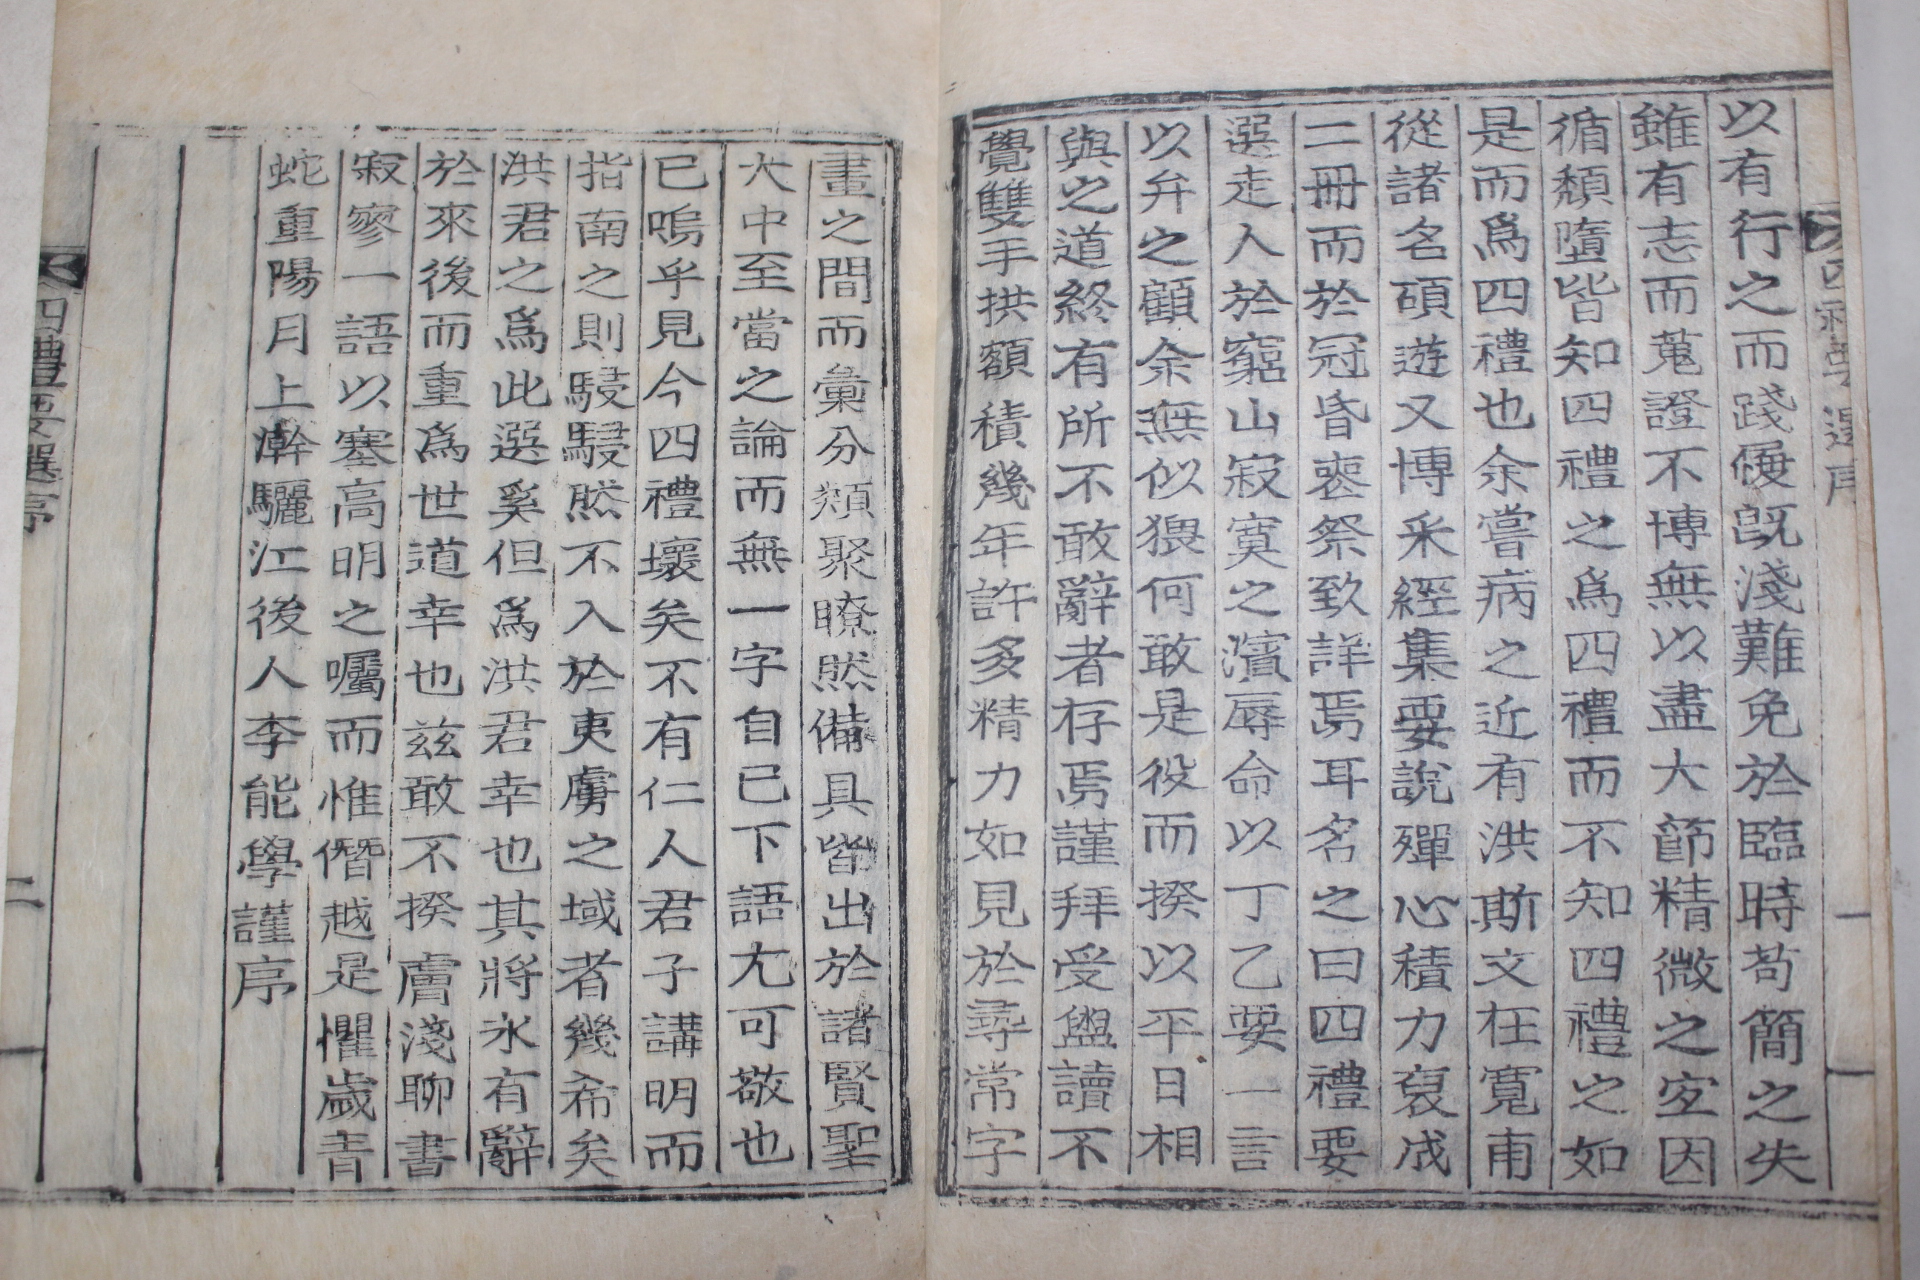 四禮要選序 一
以有行之而踐履旣淺難免於臨時苟簡之失
雖有志而蒐證不博無以盡大節精微之宜因
循頹墮皆知四禮之爲四禮而不知四禮之如
是而爲四禮也余嘗病之近有洪斯文在寬甫
從諸名碩遊又博采經集要說殫心積力裒成
二冊而於冠昏喪祭致詳焉耳名之曰四禮要
選走人於窮山寂寞之濱辱命以丁乙要一言
以弁之顧余無似猥何敢是役而揆以平日相
與之道終有所不敢辭者存焉謹拜受盥讀不
覺雙手拱額積幾年許多精力如見於尋常字
畫之間而彙分類聚瞭然備具皆出於諸賢聖
大中至當之論而無一字自已下語尤可敬也
已嗚乎見今四禮壞矣不有仁人君子講明而
指南之則駸駸然不入於夷虜之域者幾希矣
洪君之爲此選奚但爲洪君幸也其將永有辭
於來後而重爲世道幸也玆敢不揆膚淺聊書
寂寥一語以塞高明之囑而惟僭越是懼歲靑
蛇重陽月上澣驪江後人李能學謹序
四禮要選序 二